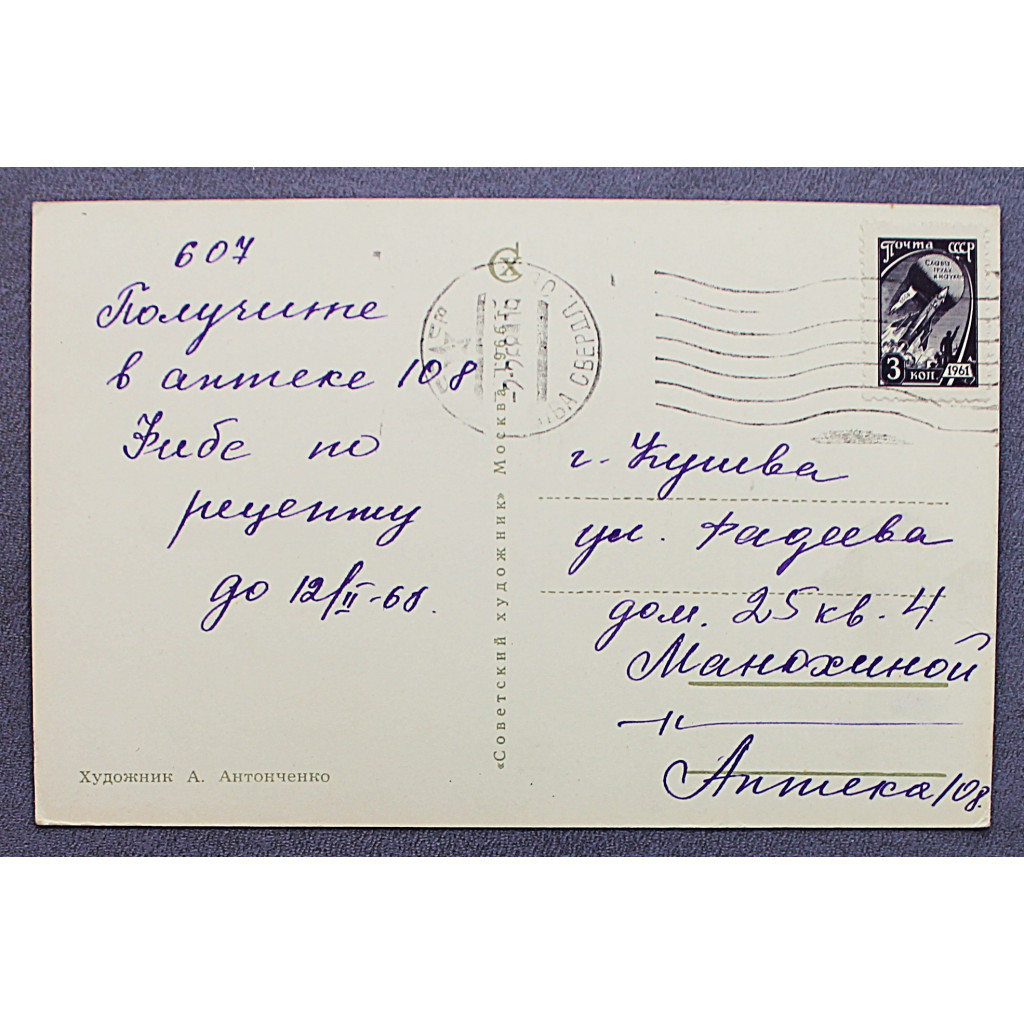 607
Получите
в аптеке 108
по
рецепту
до 12/II-68.
Художник А. Антонченко
«Советский художник» Москва 1966 г.
Почта СССР
Слава
труду
и науке
3 коп. 1961
г. Кушва
ул. Фадеева
дом. 25 кв. 4.
Манохиной
Аптека 108.